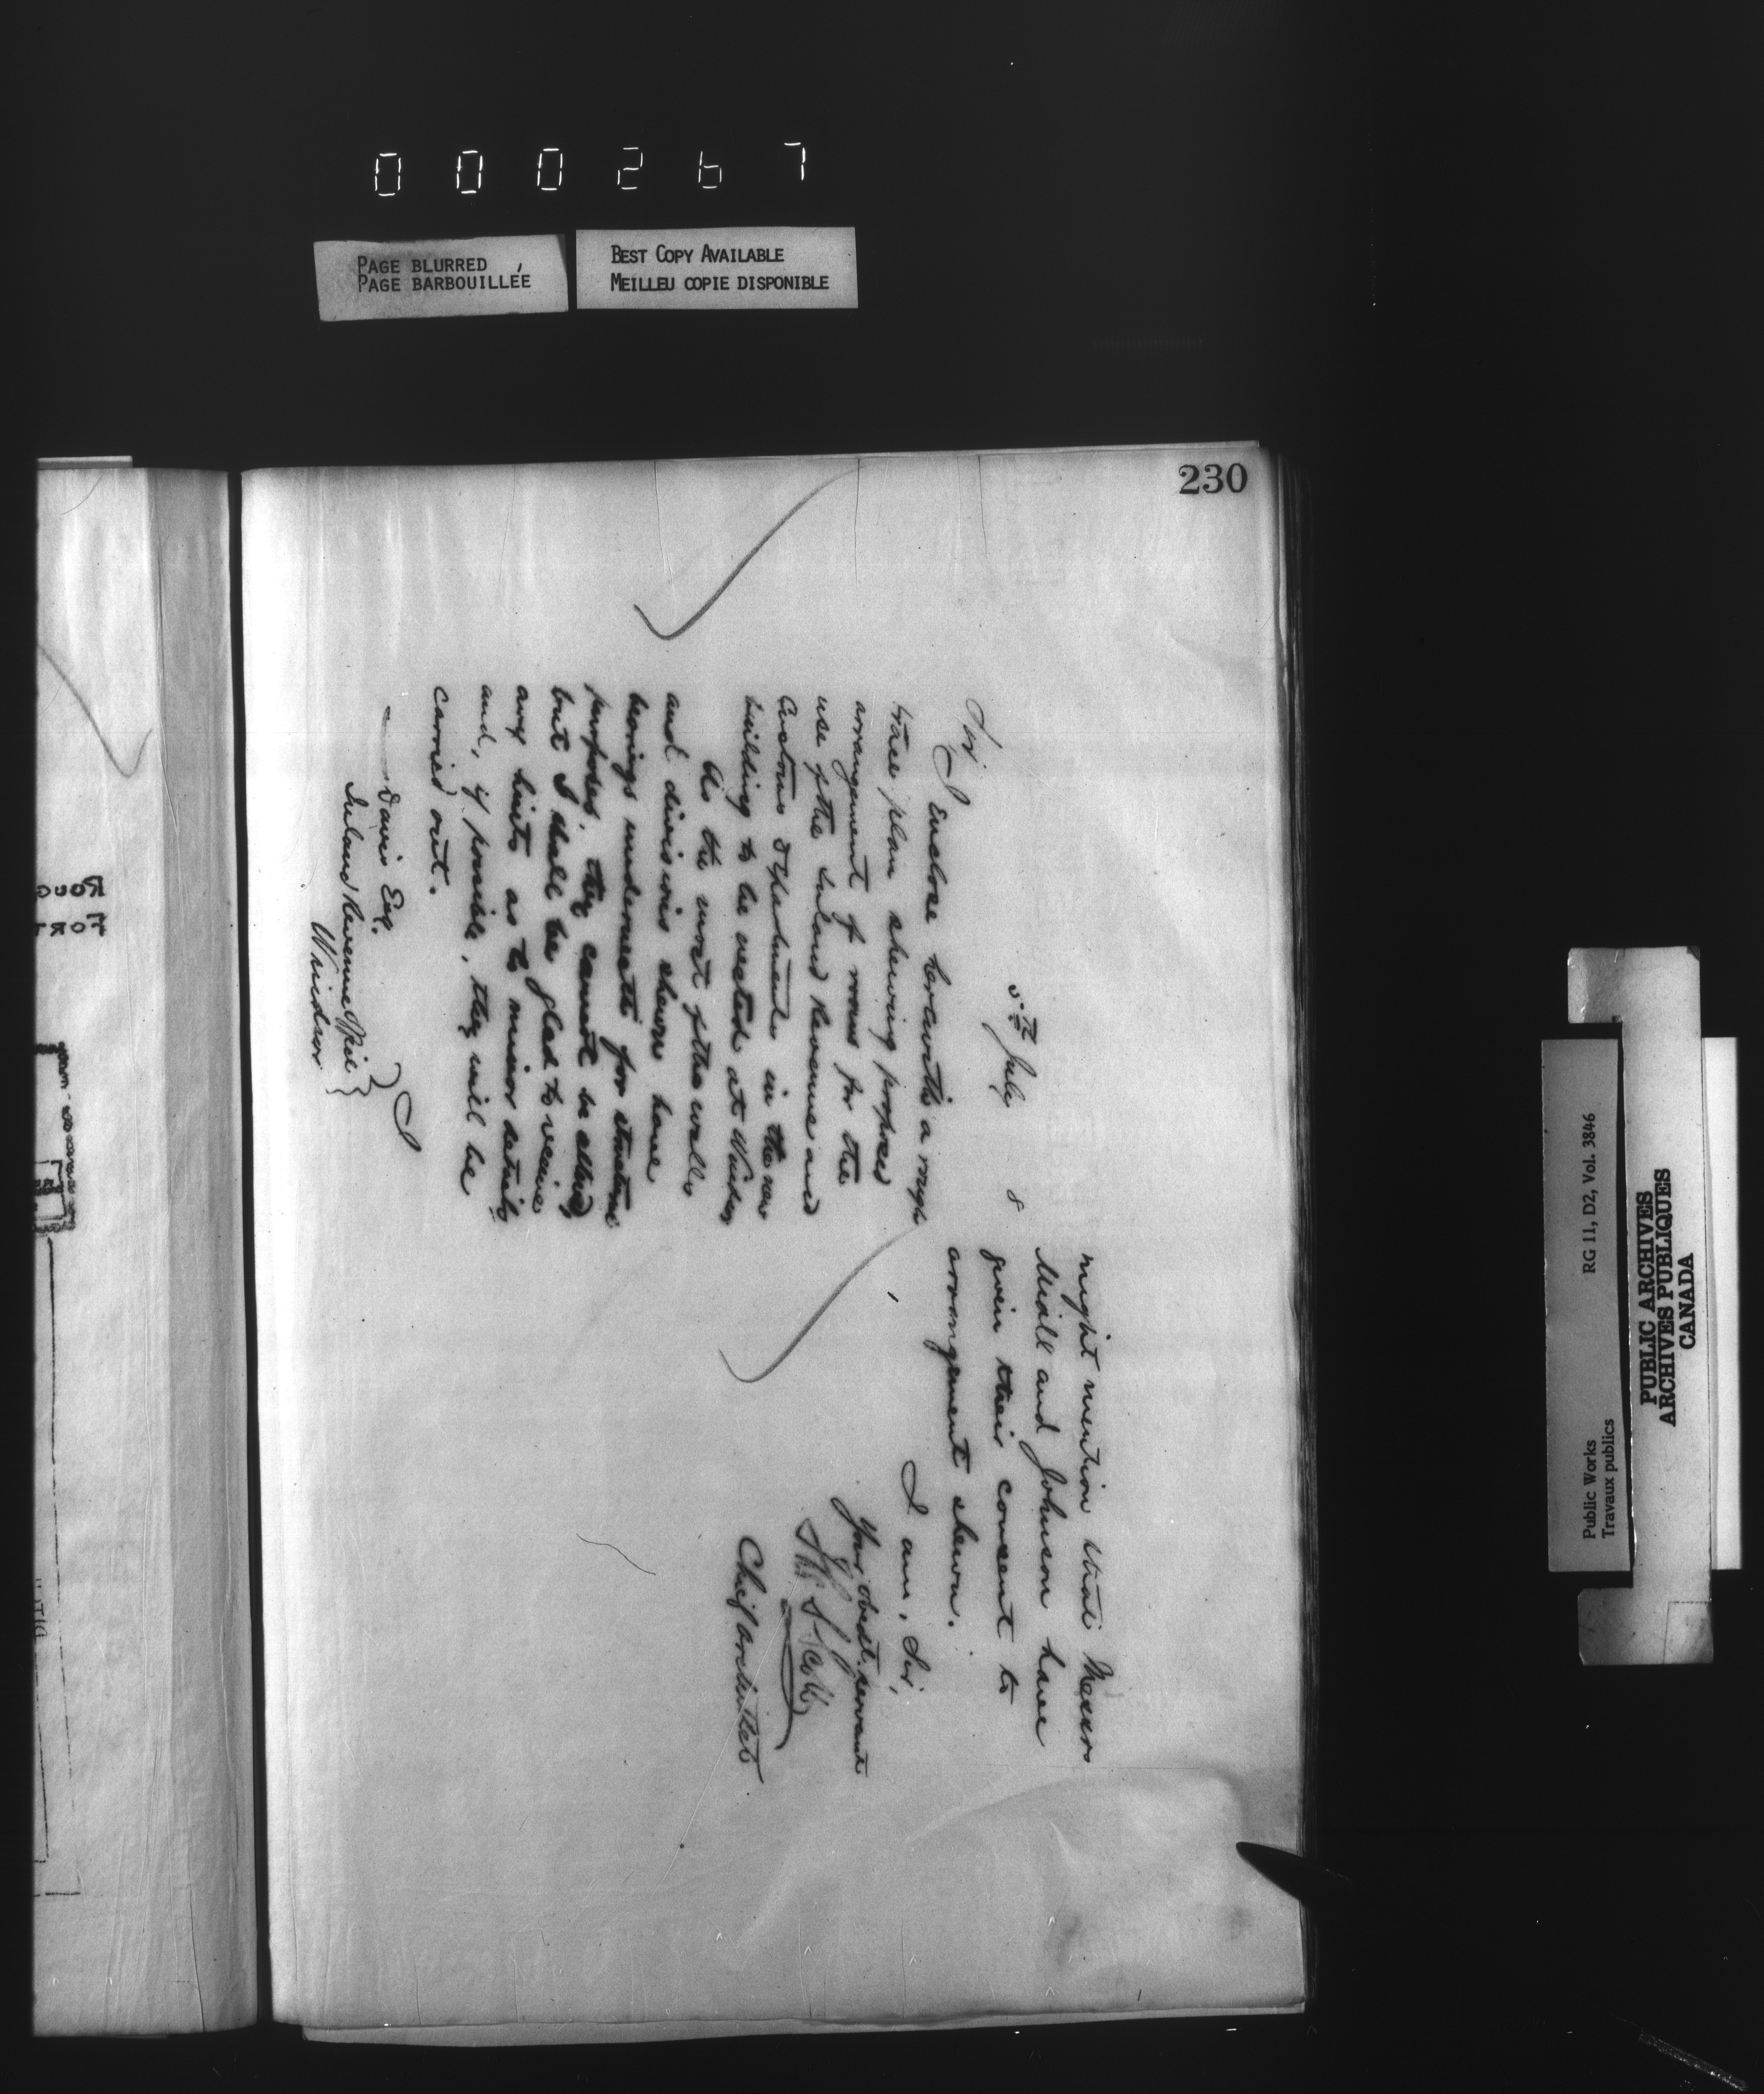 000267
PAGE BLURRED
PAGE BARBOUILLÉE
BEST COPY AVAILABLE
MEILLEU COPIE DISPONIBLE
230
5th July 8
Sir
I enclose herewith a rough
trace plan shewing proposed
arrangement of rooms for the
use of the Inland Revenue and
Customs Departments in the new
building to be erected at Windsor
As the most of the walls
and divisions shewn have
bearings underneath for structure
purposes, they cannot be altered,
but I shall be glad to receive
any hints as to minor details
and, if possible, they will be
carried out.
I
Davis Esq.
Inland Revenue Office
Windsor
might mention that Messrs
Miall and Johnson have
given their consent to
arrangement shewn.
I am, Sir,
Your obedt. servant
Thos S Scott
Chief Architect
ROUG
FORT
Public Works
Travaux publics
RG 11, D2, Vol. 3846
PUBLIC ARCHIVES
ARCHIVES PUBLIQUES
CANADA